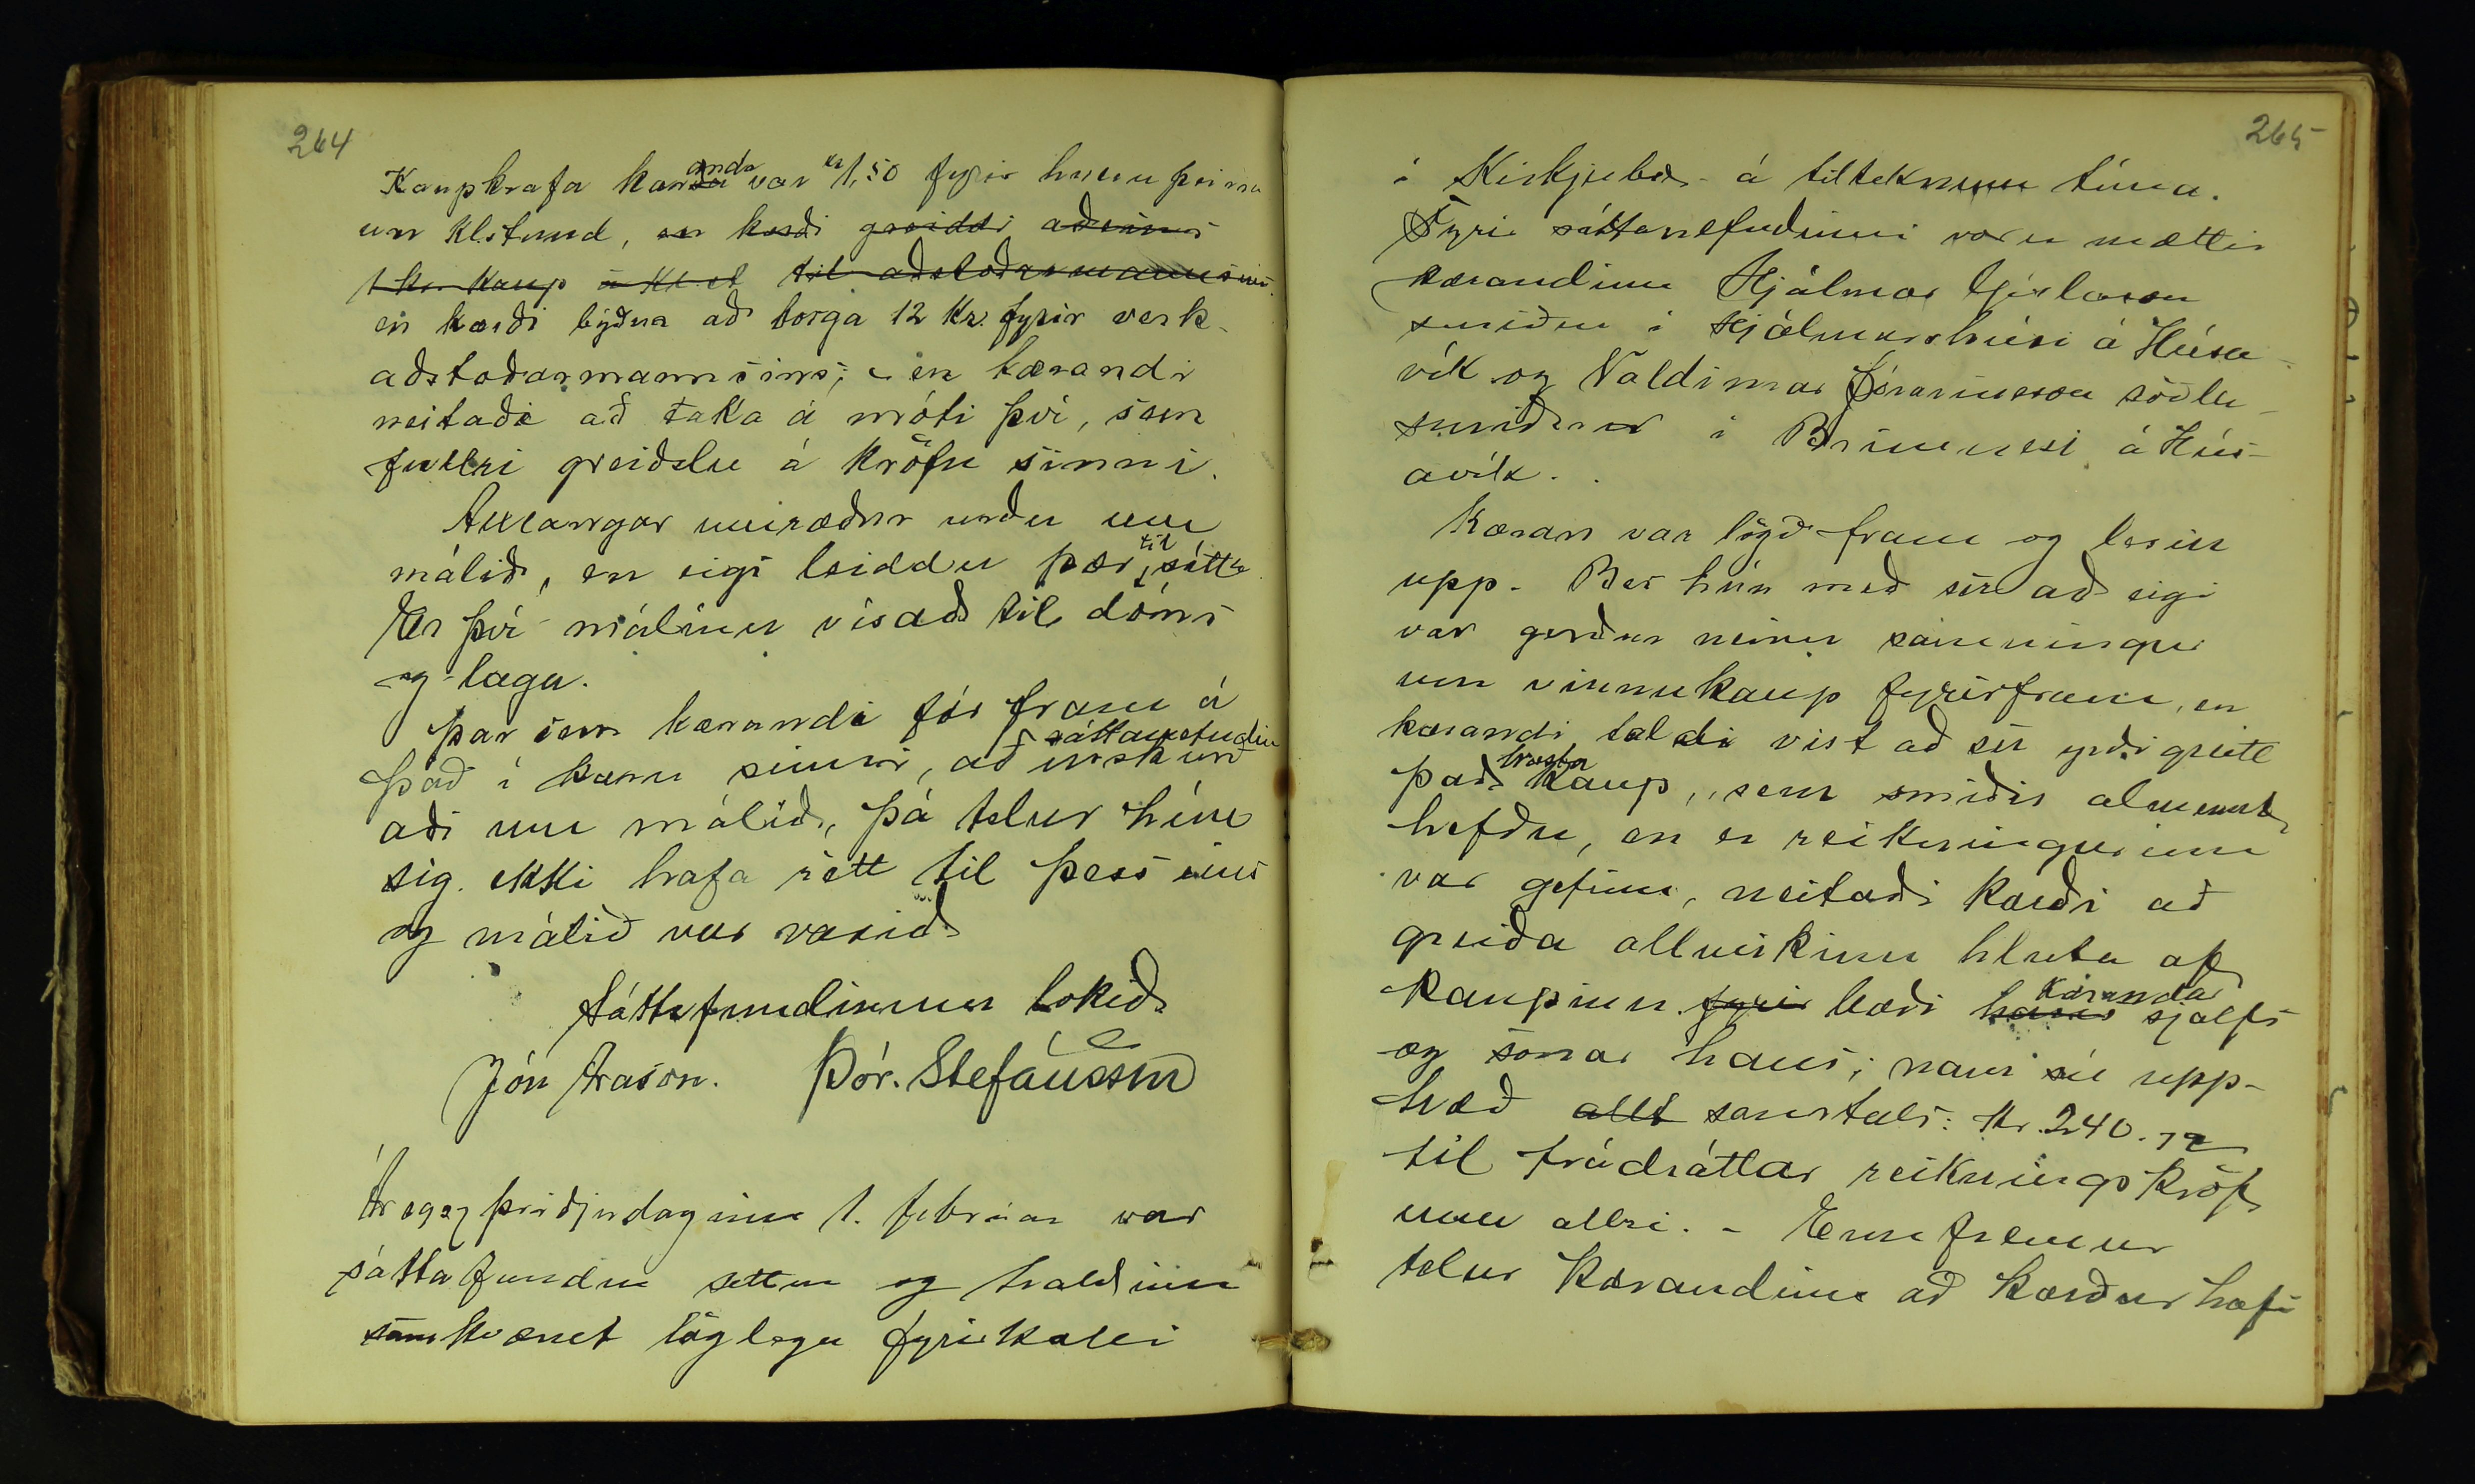 264
Kaupkrafa kæranda var kr 1,50 fyrir hvern þeirra
um klstund, en kærði greiddi aðeins
1 kr kaup á kl.st til aðstoðarmannsins.
en kærði býðst að borga 12 kr. fyrir verk
aðstoðarmannsins; en kærandi
neitaði að taka á móti því, sem
fullri greiðslu á kröfu sinni.
Alllangar umræður urðu um
málið, en eigi leiddu þær til sátta
Er því málinu vísað til dóms
og laga.
Þar sem kærandi fór fram á
það í kæru sinni, að sáttanefndin úrskurð
aði um málið, þá telur hún
sig ekki hafa rétt til þess eins
og málið var vaxið
Sáttafundinum lokið
Jón Arason. Þór. Stefánsson
Ár þriðjudaginn 1. febrúar var
sáttafundur settur og haldinn
samkvæmt löglegu fyrirkalli
265
í Kirkjubæ á tilteknum tíma.
Fyrir sáttanefndinni voru mættir
kærandinn Hjálmar
smiður í Hjálmarshúsi á Húsa
vík og Valdimar Þórarinsson söðla
smiður í Brimnesi á Hús-
avík.
Kæran var lögð fram og lesin
upp. Ber hún með sér að eigi
var gerður neinn samningur
um vinnukaup fyrirfram, en
kærandi taldi víst að sér yrði greitt
það hæsta kaup, sem smiðir almennt
hefðu, en er reikningurinn
var gefinn, neitaði kærði að
greiða allmiklum hluta af
kaupinu fyrir bæði hans kæranda sjálfs
og sonar hans; nam sú upp-
hæð allt samtals: kr. 240.72
til frádráttar reikningskröf
unni allri. - Enn fremur
telur kærandinn að kærður hafi